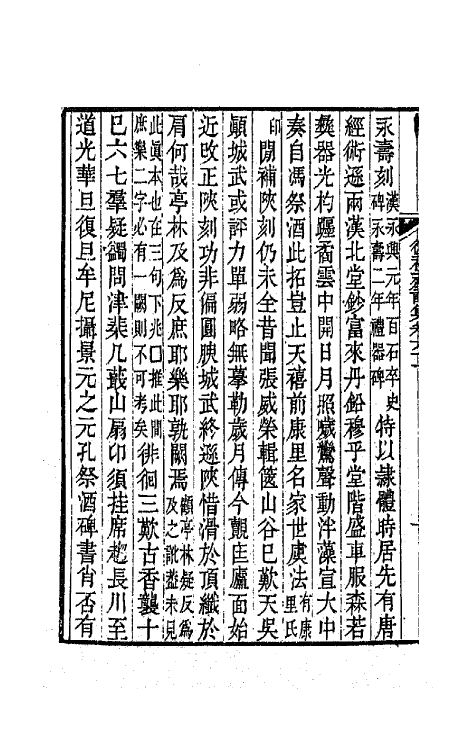 永壽刻漢永興元年百石卒史碑永壽二年禮器碑特以隸體時居先有唐
經術遜兩漢北堂鈔富來丹鉛穆乎堂階盛車服森若
彝器光杓躔矞雲中開日月照噦驚聲動泮藻宣大中
奏自馮祭酒此拓豈止天禧前康里名家世虞法有康里氏
印閒補陝刻仍未全昔聞張威榮輯篋山谷巳歎天吳
顚城武或評力單弱略無摹勒歲月傳今觀廬面始
近改正陝刻功非偏圓腴城武終遜陝惜滑於頂纖於
肩何哉亭林及爲反庶耶樂耶孰闕焉顧亭林疑反爲及之訛蓋未見
此眞本也在三句下兆口推此間庶樂二字必有一闕則不可考矣徘徊三歎古香襲十
巳六七羣疑蠲問津棐几叢山扇卬須挂席趁長川至
道光華旦復旦牟尼攝景元之元孔祭酒碑書肯否有